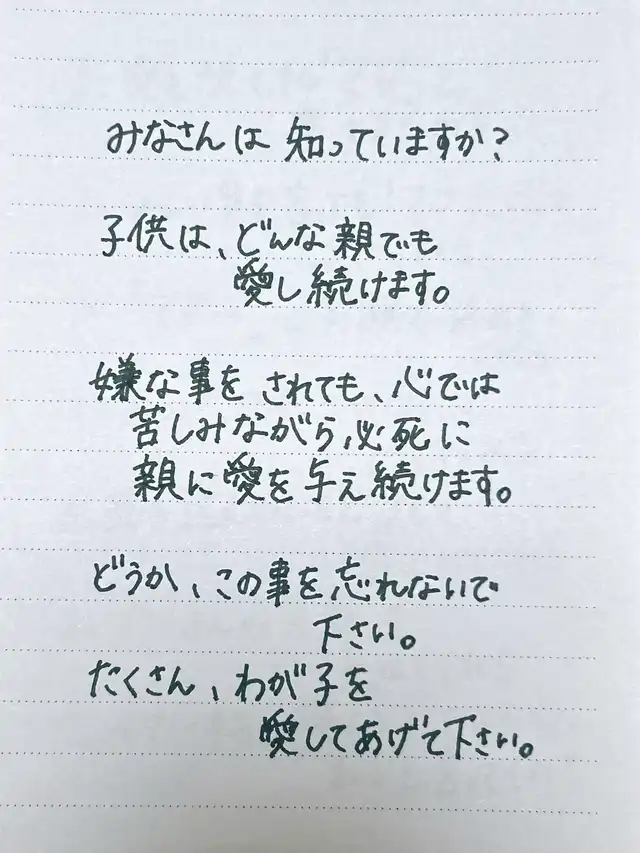 みなさんは知っていますか?
子供は、どんな親でも
愛し続けます。
嫌な事をされても、心では
苦しみながら必死に
親に愛を与え続けます。
どうか、この事を忘れないで
下さい。
たくさん、わが子を
愛してあげて下さい。